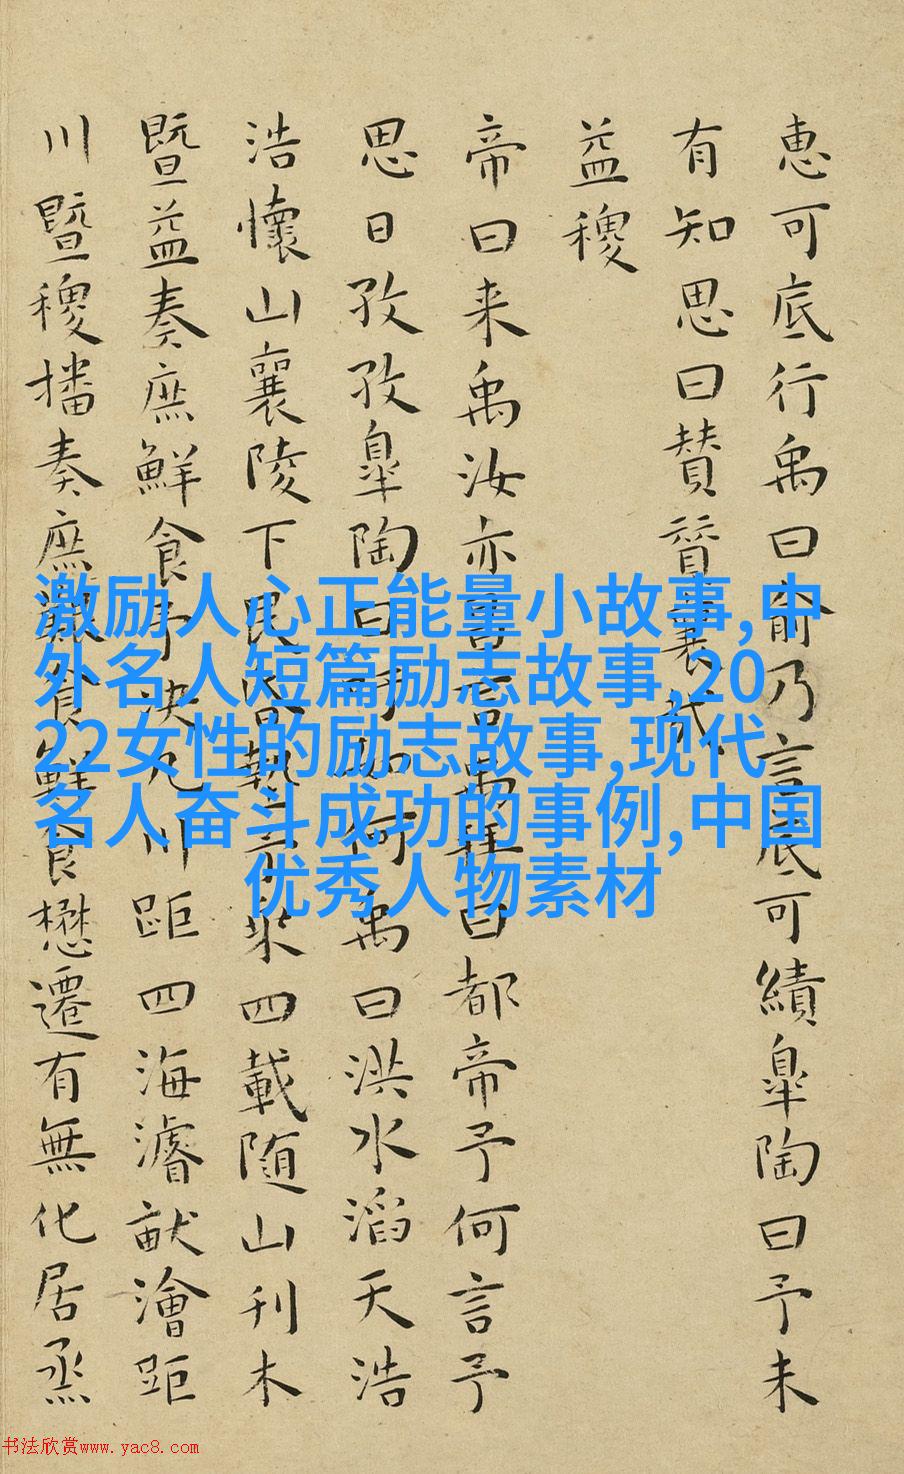 惠可底行禹曰俞乃言底可績皐陶曰予未
有知思曰賛賛襄哉
益稷
帝曰来禹汝亦昌言禹拜曰都帝予何言予
思日孜孜皐陶曰吁如何禹曰洪水滔天浩
浩懷山襄陵下民昏墊予乗四載随山刊木
暨益奏庶鮮食予决九川距四海濬畎澮距
川暨稷播奏庶艱食鮮食懋遷有無化居烝
激励人心正能量小故事,中
外名人短篇励志故事,20
22女性的励志故事,现代
名人奋斗成功的事例,中国
优秀人物素材
书法欣赏www.yac8.com